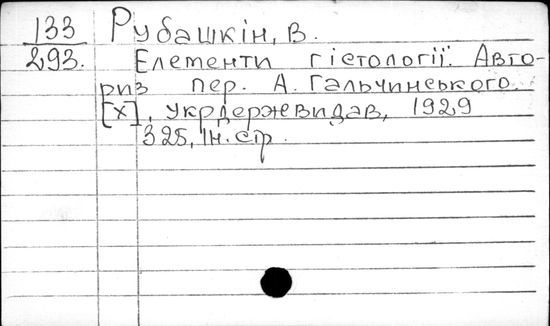 133 Рубашкін, В.
293. Елементи гістології. Авто-
риз пер. А. Гальчинського.
[х], Укрдержвидав, 1929
325, Ін. стр.